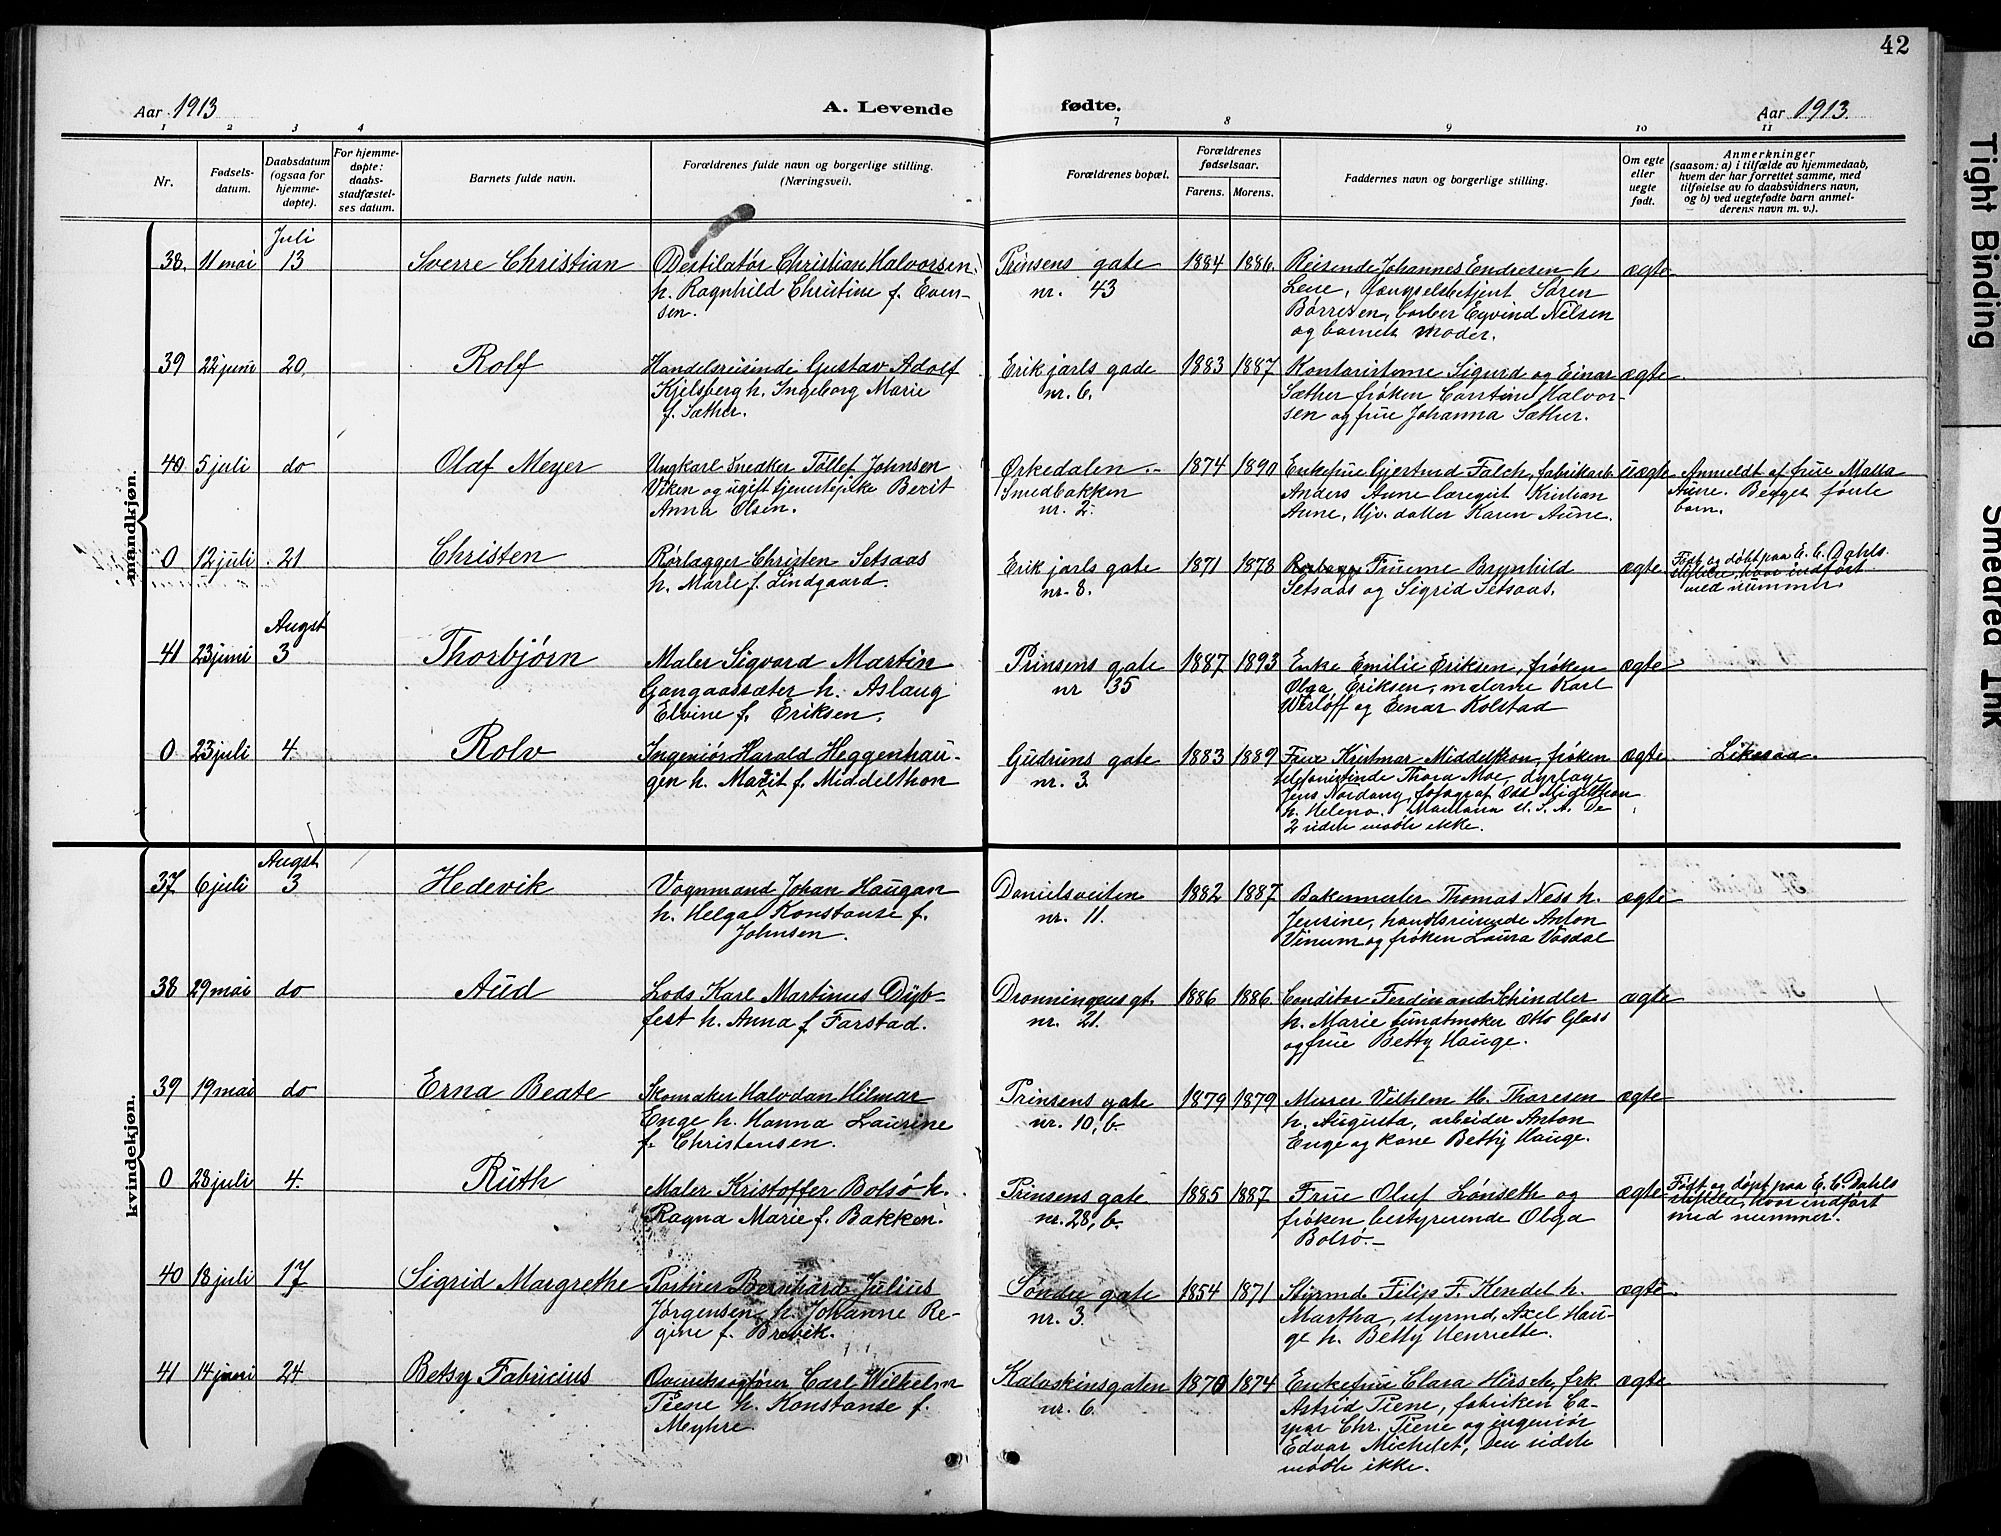 42
Aar 1913
A. Levende
fødte.
Aar 1913.
1 2 3 4 7 8 9 10 11
Nr.
Fødsels-
datum.
Daabsdatum
(ogsaa for
hjemme-
døpte).
For hjemme-
døpte:
daabs-
stadfæstel-
ses datum.
Barnets fulde navn.
Forældrenes fulde navn og borgerlige stilling.
(Næringsvei).
Forældrenes bopæl.
Forældrenes
fødselsaar.
Farens. Morens.
Faddernes navn og borgerlige stilling.
Om egte
eller
uegte
født.
Anmerkninger
(saasom: a) i tilfælde av hjemmedaab,
hvem der har forrettet samme, med
tilføielse av to daabsvidners navn,
og b) ved uegtefødte barn anmel-
derens navn m. v.).
mandkjøn.
Juli
38. 11 mai 13 Sverre Christian
Destilatør Christian Halvorsen
h. Ragnhild Christine f. Even-
sen.
Prinsens gate
nr. 43
1884 1886
Reisende Johannes Endresen h.
Lene, fængselsbetjent Sören
Börresen, barber Eyvind Nilsen
og barnets moder.
ægte
39 22 juni 20. Rolf
Handelsreisende Gustav Adolf
Kjelsberg h. Ingeborg Marie
f. Sæther.
Erik jarls gade
nr. 6.
1883 1887
Kontoristerne Sigurd og Einar
Sæther frøken Halvor-
sen og frue Johanna Sæther.
ægte
40 5 juli do Olaf Meyer
Ungkarl snedker Tollef Johnsen
Viken og ugift tjenestepike Berit
Anna Olsen.
Ørkedalen.-
Smedbakken
nr. 2.
1874 1890
Enkefrue Gjertrud Falch, fabrikarb.
Anders Aune læregut Kristian
Aune, Hjv. datter Karen Aune.
uægte
Anmeldt af frue Malla
Aune. Begges første
barn.
0 12 juli 21 Christen
Rørlægger Christen Setsaas
h. Marie f. Lindgaard.
Erik jarls gate
nr. 8.
1871 1878
Fruerne Brynhild
Setsaas og Sigrid Setsaas.
ægte
Født og døbt paa E. C. Dahls
stiftelse, hvor indført
med nummer.
Augst
41 23 juni 3 Thorbjørn
Maler Sigvard Martin
Gangaassæter h. Aslaug
Elvine f. Eriksen.
Prinsens gate
nr 35
1887 1893
Enke Emilie Eriksen, frøken
Olga Eriksen, malerne Karl
og Einar Kolstad
ægte
0 23 juli 4. Rolv
Ingeniör Harald Heggenhau-
gen h. Marit f. Middelthon
Gudruns gate
nr. 3.
1883 1889
Frue Middelthon, frøken
telefonistinde Thora Moe, dyrlæge
Jens Nordang, fotograf Odd Middelthon
h. Helena. Montana U. S. A. De
2 sidste mødte ikke.
ægte
Likesaa.
kvindekjøn.
Augst
37 6 juli 3 Hedevik
Vognmand Johan Haugan
h. Helga Konstanse f.
Johnsen.
Danielsveiten
nr. 11.
1882 1887
Bakermester Thomas Ness h.
Jensine, handlsreisende Anton
Vinum og frøken Laura Vosdal
ægte
38 29 mai do Aud
Lods Karl Martinus Dyb-
fest h. Anna f. Farstad.
Dronningens gt.
nr. 21.
1886 1886
Conditor Ferdinand Schindler
h. Marie bundtmaker Otto Glass
og frue Betty Hauge.
ægte
39 19 mai do Erna Beate
Skomaker Halvdan Hilmar
Enge h. Hanna Laurine
f. Christensen.
Prinsens gate
nr. 10, b.
1879 1879
Murer Vilhelm H. Thoresen
h. Augusta, arbeider Anton
Enge og kone Betty Hauge.
ægte
0 28 juli 4. Ruth
Maler Kristoffer Bolsö h.
Ragna Marie f. Bakken.
Prinsens gate
nr. 28, b.
1885 1887
Frue Oluf Lønseth og
frøken, bestyrerende Olga
Bolsö.-
ægte
Født og døpt paa E. C. Dahls
stiftelse, hvor indført
med nummer.
40 18 juli 17 Sigrid Margrethe
Portner Bernhard Julius
Jørgensen h. Johanne Re-
gine f. Brevik.
Søndre gate
nr. 3.
1854 1871
Styrmd. Filip F. Kendel h.
Martha, styrmd. Axel Hau-
ge h. Betty Henriette.
ægte.
41 14 juni 24 Betsy Fabricius
Overretssagfører Carl Wilhelm
Piene h. Konstanse f.
Meyhre.
Kalvskinsgaten
nr. 6.
1870 1874
Enkefrue Clara Hirsch, frk.
Astrid Piene, fabrikeier Ca-
spar Chr. Piene og ingeniør
Edvar Michelet, den sidste
mødte ikke.
ægte
Tight Binding
Smeared Ink